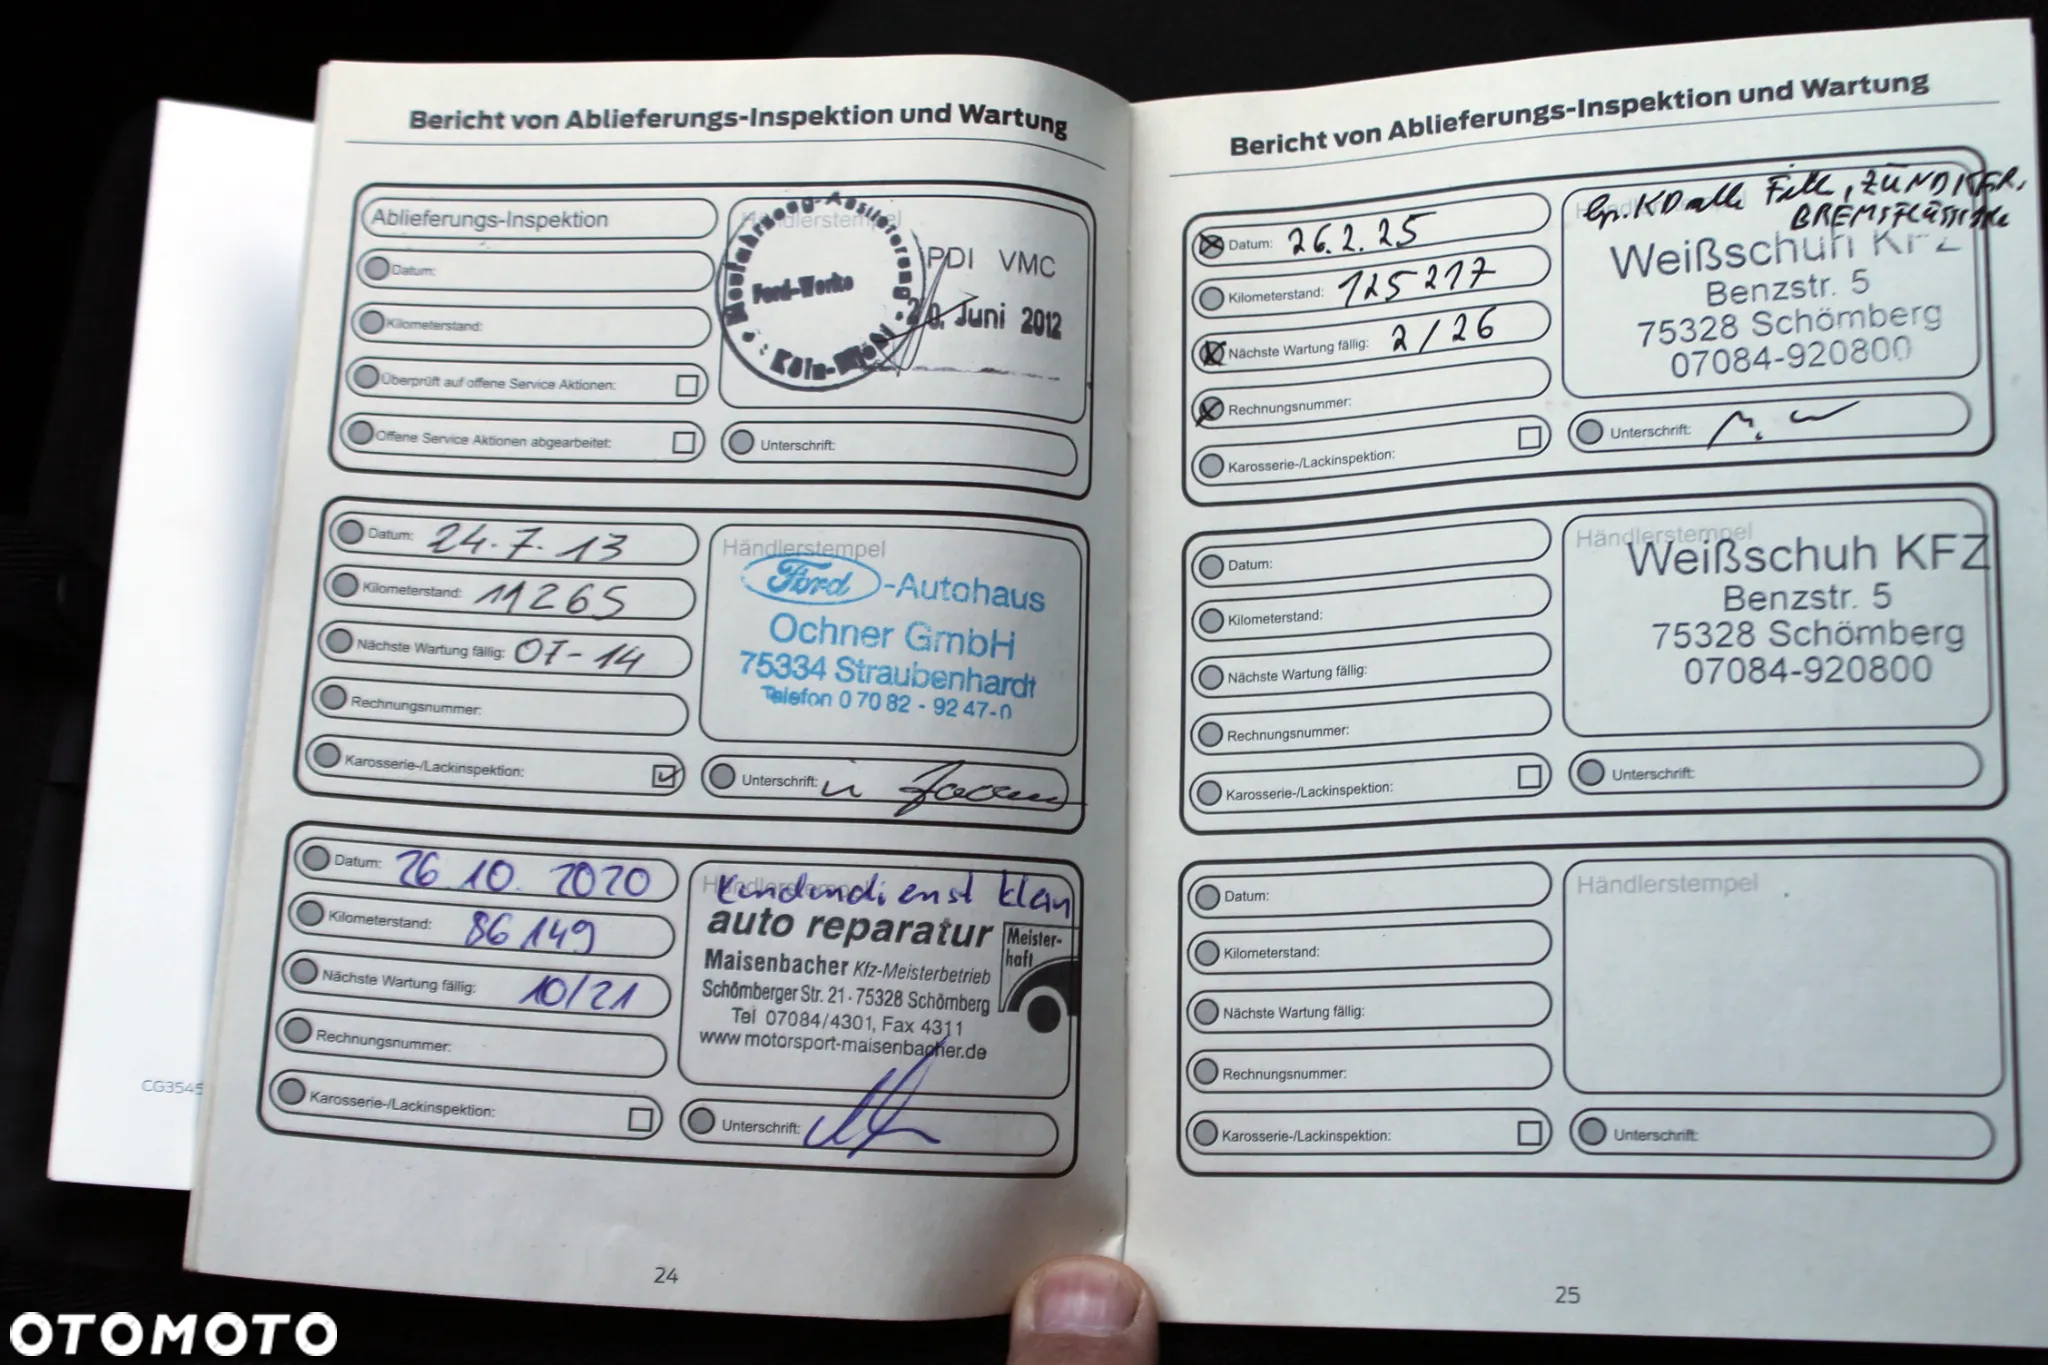 Bericht von Ablieferungs-Inspektion und Wartung
Ablieferungs-Inspektion
Datum:
Kilometerstand:
Überprüft auf offene Service Aktionen:
Offene Service Aktionen abgearbeitet:
Händlerstempel
Neufahrzeug-Auslieferung
Ford-Werke
PDI VMC
20. Juni 2012
Unterschrift:
Datum: 24.7.13
Kilometerstand: 11265
Nächste Wartung fällig: 07-14
Rechnungsnummer:
Karosserie-/Lackinspektion:
Händlerstempel
Ford-Autohaus
Ochner GmbH
75334 Straubenhardt
Telefon 0 70 82 - 92 47-0
Unterschrift:
Datum: 26.10.2020
Kilometerstand: 86149
Nächste Wartung fällig: 10/21
Rechnungsnummer:
Karosserie-/Lackinspektion:
Händlerstempel
Kundendienst klein
auto reparatur
Meister-
haft
Maisenbacher Kfz-Meisterbetrieb
Schömberger Str. 21 · 75328 Schömberg
Tel 07084/4301, Fax 4311
www.motorsport-maisenbacher.de
Unterschrift:
24
CG3545
Bericht von Ablieferungs-Inspektion und Wartung
Datum: 26.2.25
Kilometerstand: 125217
Nächste Wartung fällig: 2/26
Rechnungsnummer:
Karosserie-/Lackinspektion:
KD alle
BREMSFLÜSSIGK
Weißschuh KFZ
Benzstr. 5
75328 Schömberg
07084-920800
Unterschrift:
Datum:
Kilometerstand:
Nächste Wartung fällig:
Rechnungsnummer:
Karosserie-/Lackinspektion:
Händlerstempel
Weißschuh KFZ
Benzstr. 5
75328 Schömberg
07084-920800
Unterschrift:
Datum:
Kilometerstand:
Nächste Wartung fällig:
Rechnungsnummer:
Karosserie-/Lackinspektion:
Händlerstempel
Unterschrift:
25
OTOMOTO